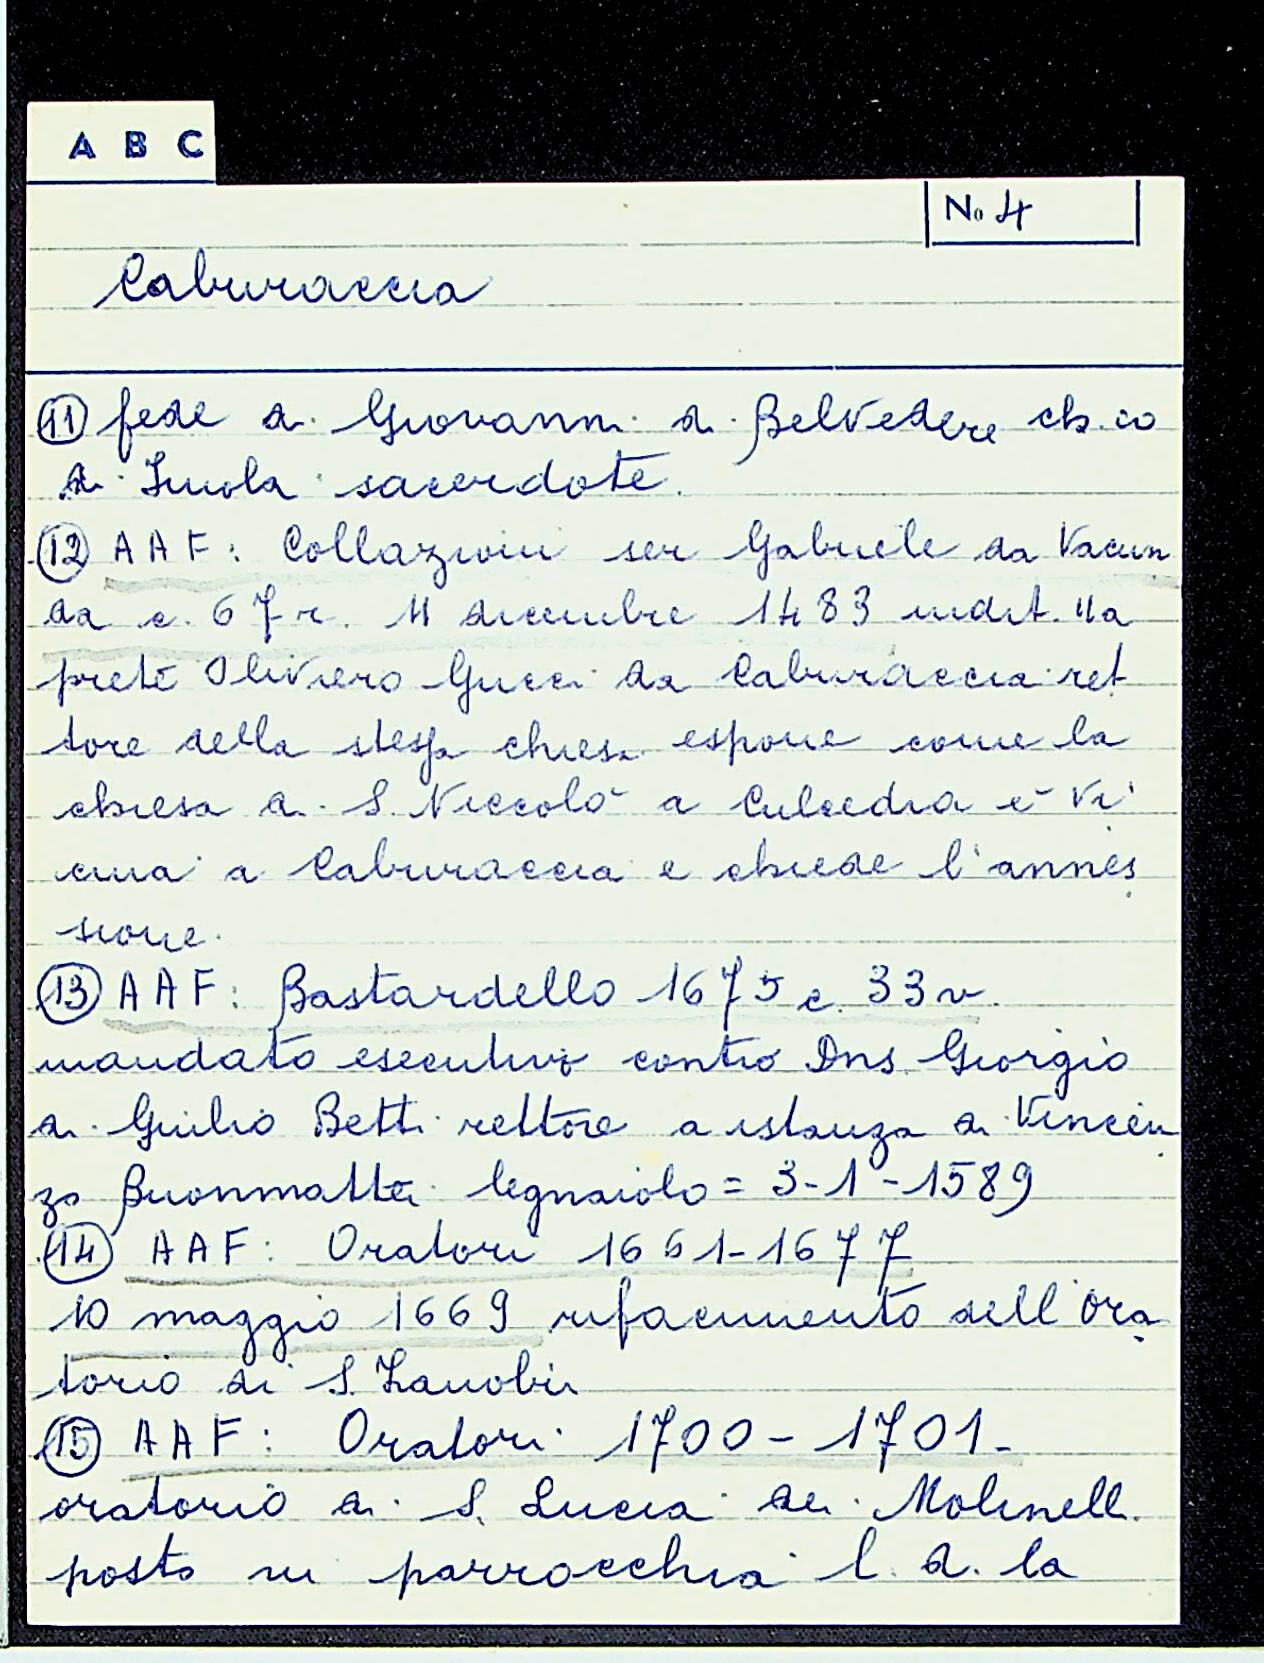 A B C
No 4
Caburaccia
11 fede di Giovanni di Belvedere ch.co
di Imola sacerdote.
12 AAF: Collazioni ser Gabriele da Vacun
da c. 67r. 11 dicembre 1483 indit. IIa
prete Oliviero Gucci da Caburaccia ret
tore della stessa chiesa espone come la
chiesa di S. Niccolò a Culcedra è vi
cina a Caburaccia e chiede l'annes
sione.
13 AAF: Bastardello 1675 c. 33v.
mandato esecutivo contro Dns. Giorgio
di Giulio Betti rettore a istanza di Vincen
zo Buonmattei legnaiolo = 3-1-1589
14 AAF: Oratori 1661-1677
10 maggio 1669 rifacimento dell'ora
torio di S. Zanobi
15 AAF: Oratori 1700-1701-
oratorio di S. Lucia dei Molinelli
posto in parrocchia l. d. la